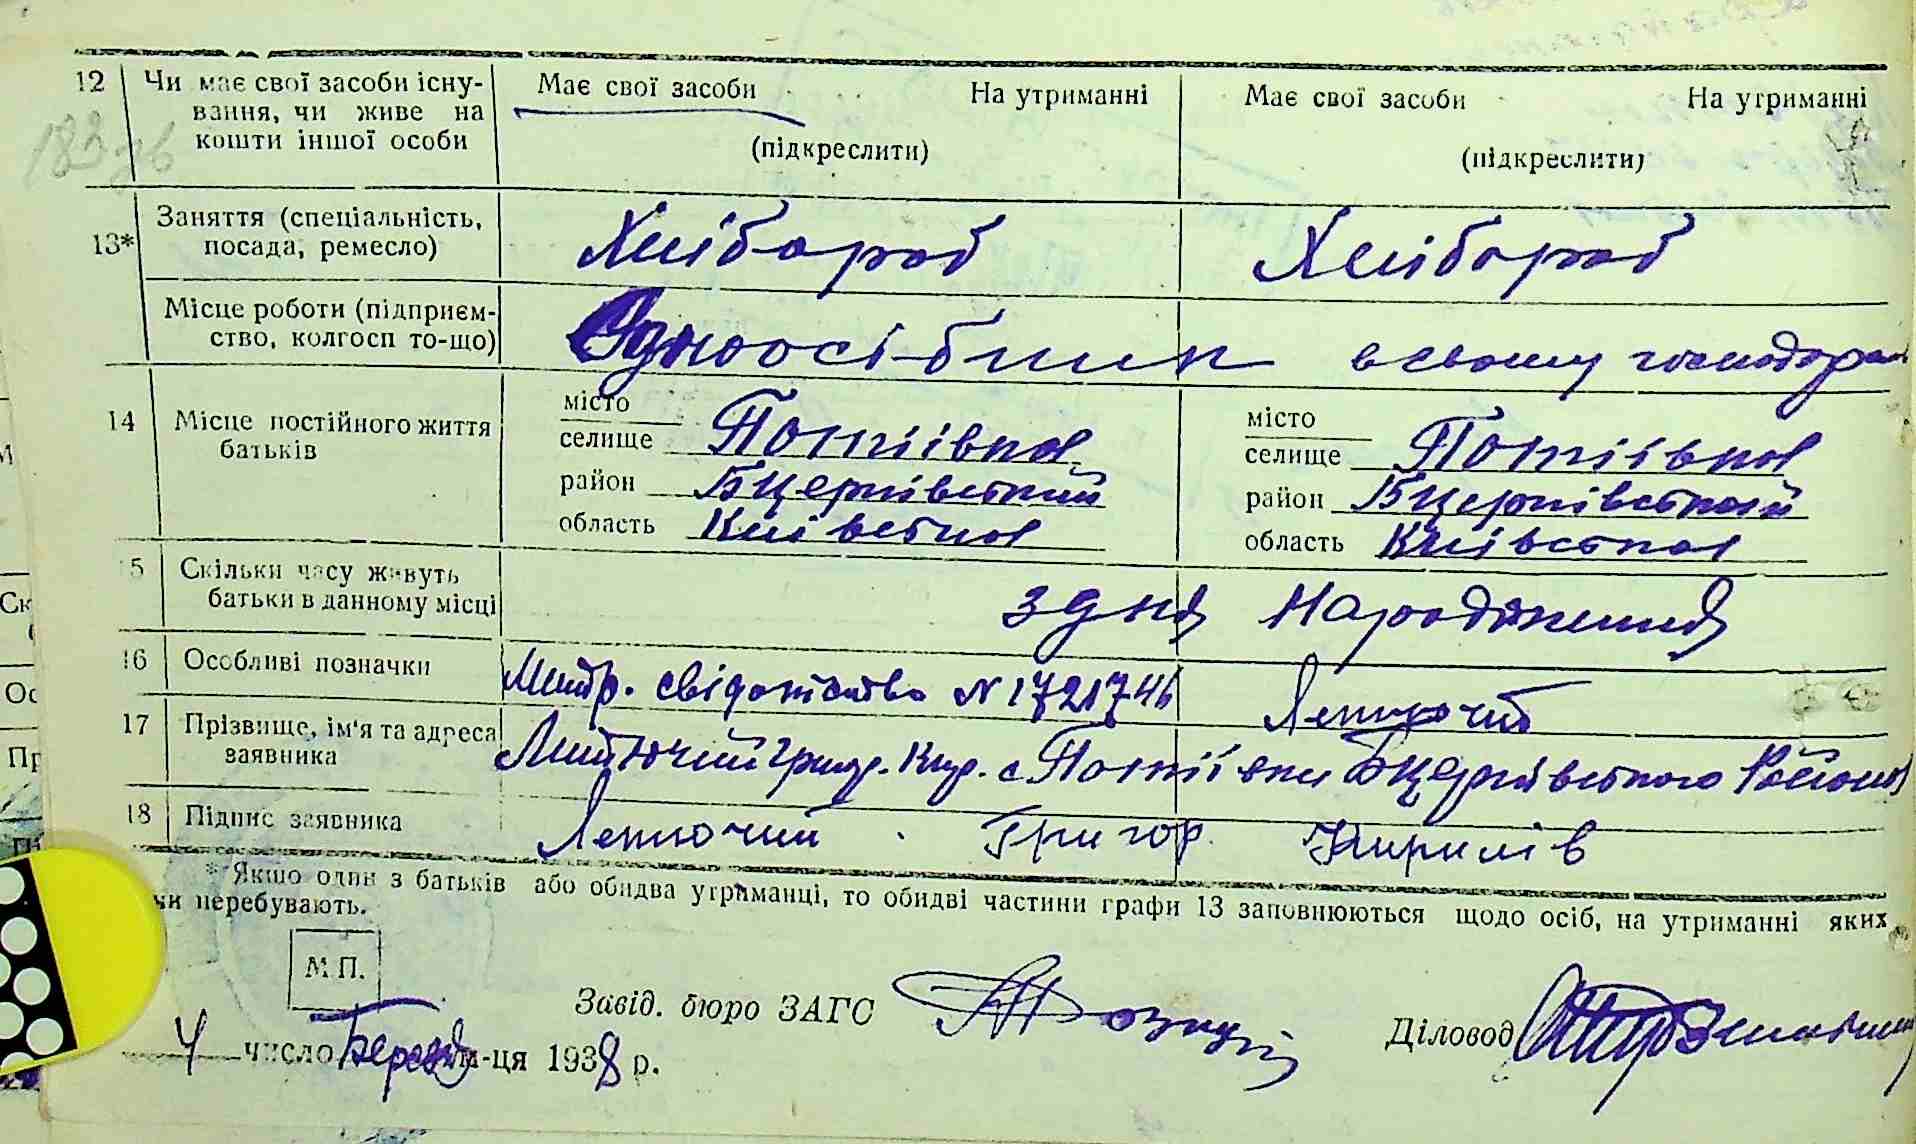 12 Чи має свої засоби існу- Має свої засоби На утриманні Має свої засоби На утриманні
вання, чи живе на
кошти іншої особи (підкреслити) (підкреслити)
13* Заняття (спеціальність, Хлібороб Хлібороб
посада, ремесло)
Місце роботи (підприєм- Одноосібник в своему господар
ство, колгосп то-що)
14 Місце постійного життя місто місто
батьків селище Потіївка селище Потіївка
район Бцерківський район Бцерківский
область Київська область Київська
15 Скільки часу живуть з дня Народження
батьки в данному місці
16 Особливі позначки Митр. свідотство N 1721746
17 Прізвище, ім'я та адреса Григ. Кир. с Потіївки Бцерківського Района
заявника
18 Підпис заявника Григор Кирилів
* Якшо один з батьків або обидва утриманці, то обидві частини графи 13 заповнюються щодо осіб, на утриманні яких
чи перебувають.
М.П.
Завід. бюро ЗАГС
Діловод
4 число Березня м-ця 1938 р.